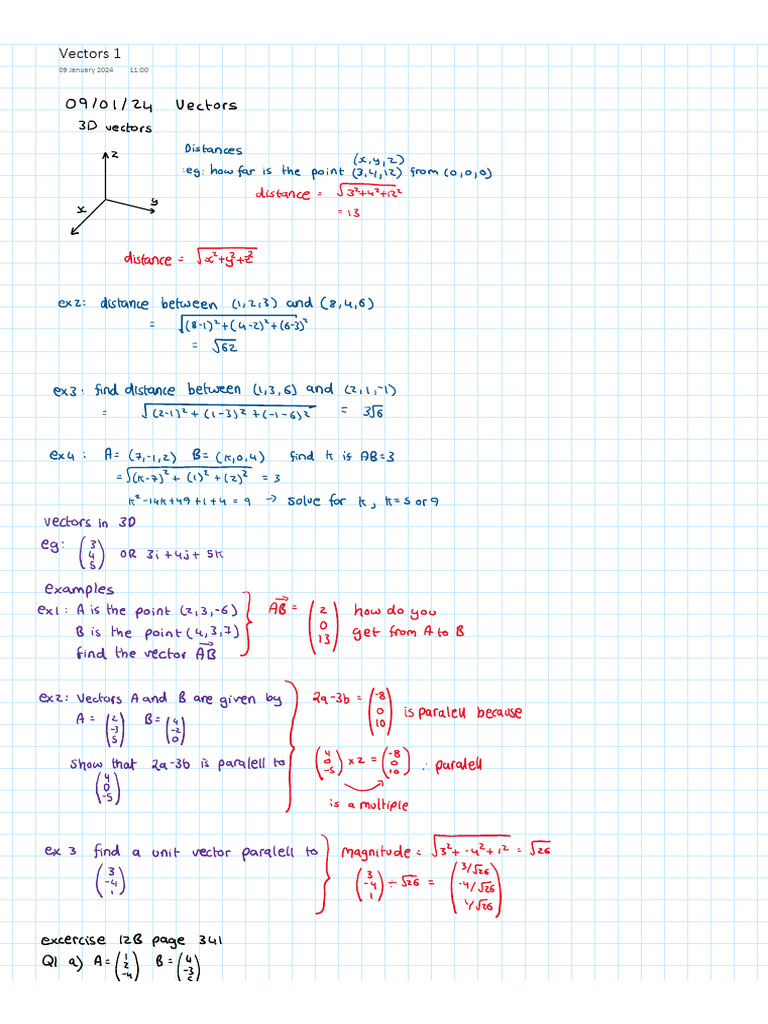 Vectors 1
09 January 2024 11:00
09/01/24 Vectors
3D vectors
z
y
x
Distances
(x,y,z)
:eg: how far is the point (3,4,12) from (0,0,0)
distance = √3²+4²+12²
= 13
distance = √x²+y²+z²
ex2: distance between (1,2,3) and (8,4,6)
= √(8-1)²+(4-2)²+(6-3)²
= √62
ex3: find distance between (1,3,6) and (2,1,-1)
= √(2-1)²+(1-3)²+(-1-6)² = 3√6
ex4: A=(7,-1,2) B=(k,0,4) find k is AB=3
=√(k-7)²+(1)²+(2)² = 3
k²-14k+49+1+4=9 → solve for k, k=5 or 9
vectors in 3D
eg: (3 4 5) OR 3i+4j+5k
examples
ex1: A is the point (2,3,-6)
B is the point (4,3,7)
find the vector AB
AB = (2 0 13) how do you
get from A to B
ex2: Vectors A and B are given by
A = (2 -3 5) B = (4 -2 0)
show that 2a-3b is paralell to
(4 0 -5)
2a-3b = (-8 0 10) is paralell because
(4 0 -5) × 2 = (-8 0 10) ∴ paralell
is a multiple
ex 3 find a unit vector paralell to
(3 -4 1)
magnitude = √3²+-4²+1² = √26
(3 -4 1) ÷ √26 = (3/√26 -4/√26 1/√26)
excercise 12B page 341
Q1 a) A=(1 2 -4) B=(4 -3 5)